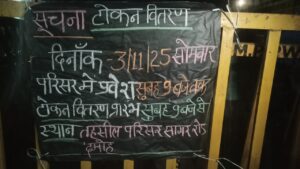 सूचना टोकन वितरण
दिनाँक 3/11/25 सोमवार
परिसर में प्रवेश सुबह 9 बजे तक
टोकन वितरण प्रारंभ सुबह 9 बजे से
स्थान तहसील परिसर सागर रोड
दमोह